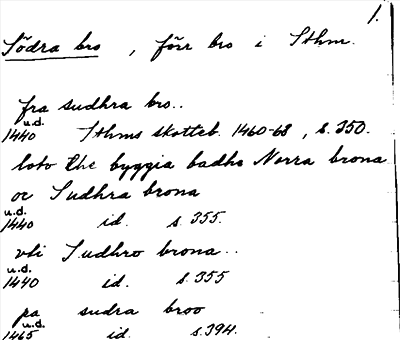 1.
Södra bro, förr bro i Sthm.
fra sudhra bro..
u.d.
1440 Sthms skotteb. 1460-68, s. 350.
loto the byggia badhe Norra brona
oc Sudhra brona
u.d.
1440 id. s. 355.
vti Sudhro brona..
u.d.
1440 id. s. 355
pa sudra broo
u.d.
1465 id. s. 394.